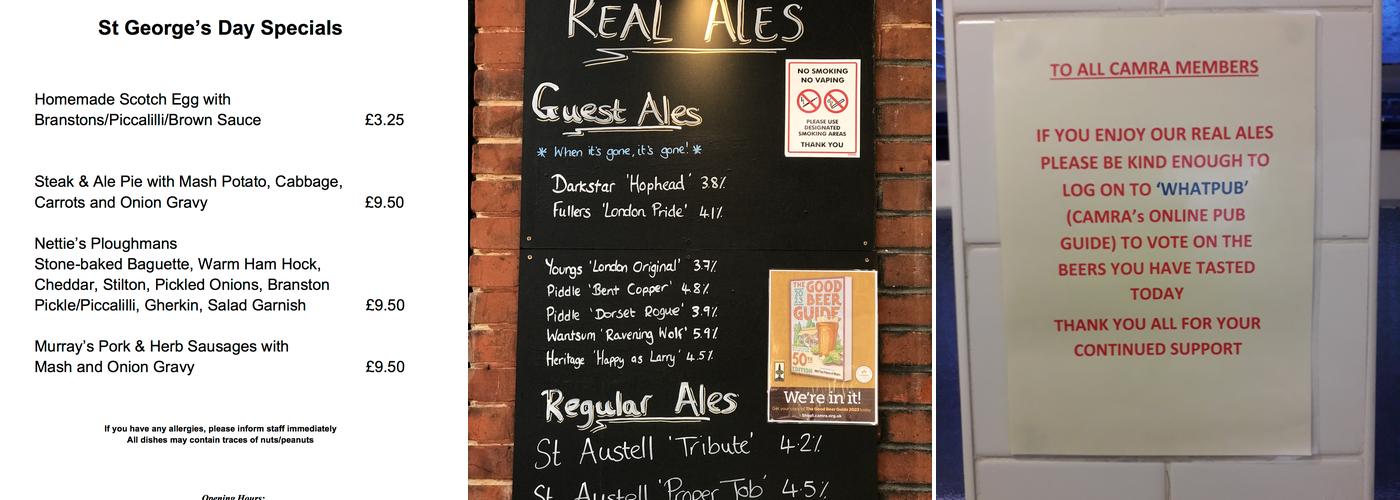 St George's Day Specials
Homemade Scotch Egg with
Branstons/Piccalilli/Brown Sauce £3.25
Steak & Ale Pie with Mash Potato, Cabbage,
Carrots and Onion Gravy £9.50
Nettie's Ploughmans
Stone-baked Baguette, Warm Ham Hock,
Cheddar, Stilton, Pickled Onions, Branston
Pickle/Piccalilli, Gherkin, Salad Garnish £9.50
Murray's Pork & Herb Sausages with
Mash and Onion Gravy £9.50
If you have any allergies, please inform staff immediately
All dishes may contain traces of nuts/peanuts
Opening Hours:
REAL ALES
Guest Ales
* When it's gone, it's gone! *
Darkstar 'Hophead' 3.8%
Fullers 'London Pride' 4.1%
Youngs 'London Original' 3.7%
Piddle 'Bent Copper' 4.8%
Piddle 'Dorset Rogue' 3.9%
Wantsum 'Ravening Wolf' 5.9%
Heritage 'Happy as Larry' 4.5%
Regular Ales
St Austell 'Tribute' 4.2%
St Austell 'Proper Job' 4.5%
NO SMOKING
NO VAPING
PLEASE USE
DESIGNATED
SMOKING AREAS
THANK YOU
THE GOOD
BEER
GUIDE
2023
50TH
EDITION
We're in it!
Get your copy of The Good Beer Guide 2023 today
shop1.camra.org.uk
TO ALL CAMRA MEMBERS
IF YOU ENJOY OUR REAL ALES
PLEASE BE KIND ENOUGH TO
LOG ON TO 'WHATPUB'
(CAMRA's ONLINE PUB
GUIDE) TO VOTE ON THE
BEERS YOU HAVE TASTED
TODAY
THANK YOU ALL FOR YOUR
CONTINUED SUPPORT